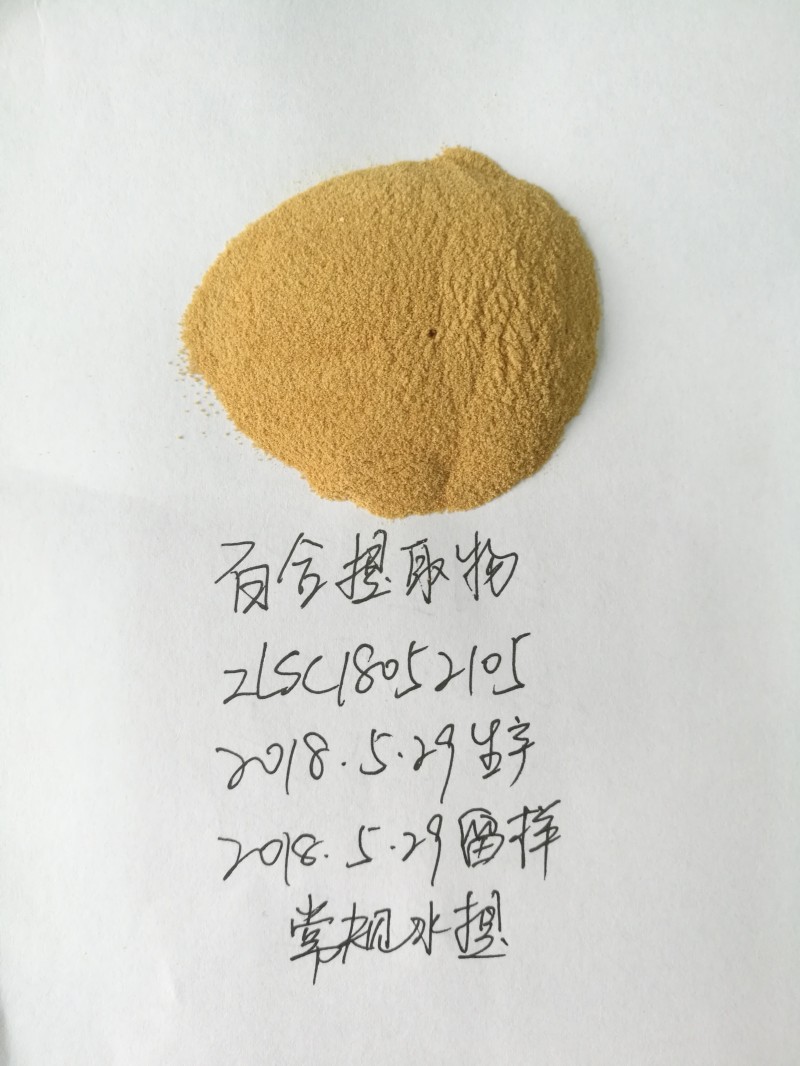 百合提取物
ZLSC18052105
2018.5.29生产
2018.5.29留样
常规水提